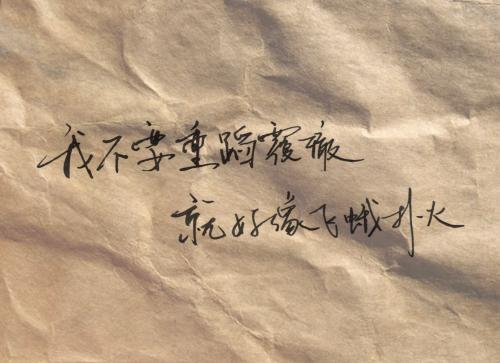 我不要重蹈覆辙
就好像飞蛾扑火